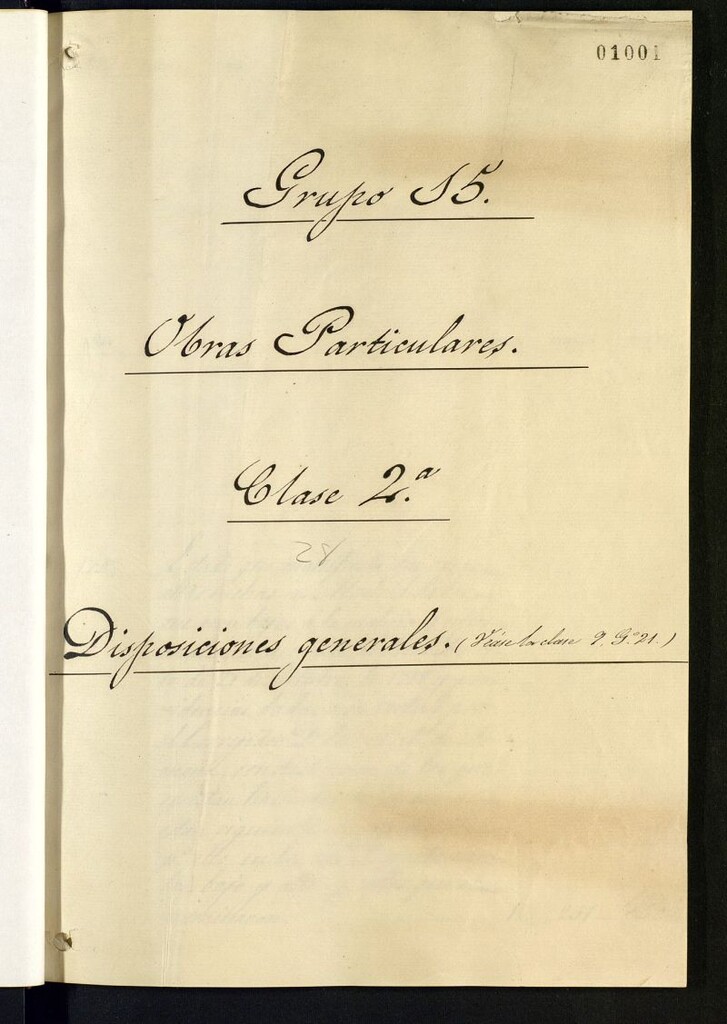 01001
Grupo 15.
Obras Particulares.
Clase 2.ª
28
Disposiciones generales. (Véase la clase 9, G.º 21.)